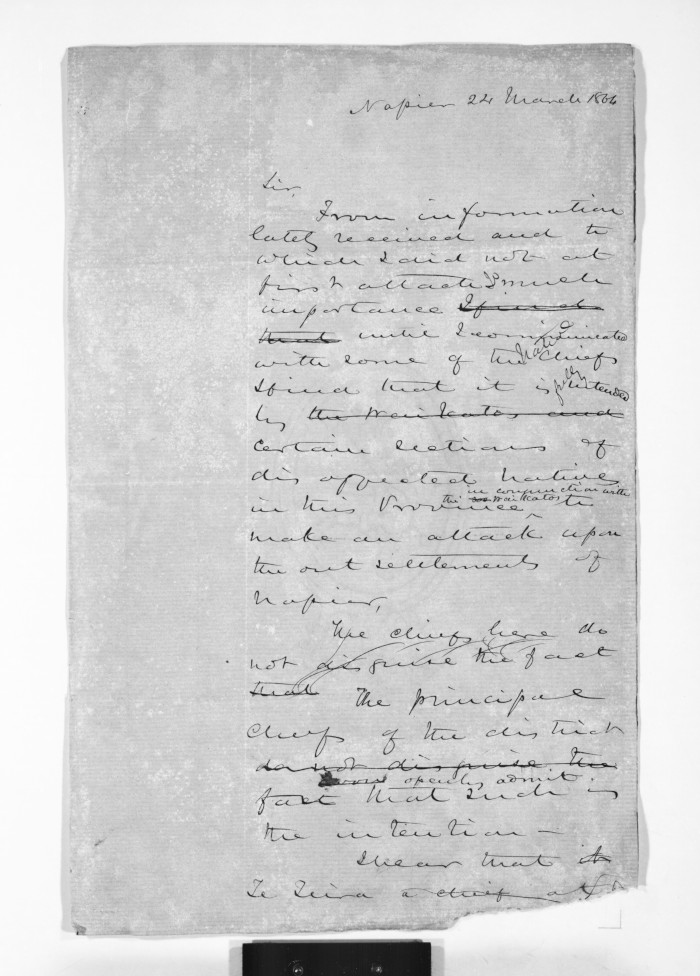 Napier 24 March 1864
Sir,
From information
lately received and to
which I did not at
first attach much
importance I find
that until I communicated
with some of the Native Chiefs
I find that it is fully intended
by the Waikatos and
certain sections of
disaffected Natives
in this Province in conjunction with the Waikatos to
make an attack upon
the out settlements of
Napier,
The chiefs here do
not disguise the fact
that The principal
Chiefs of the district
do not disguise the
openly admit
fact that such is
the intention —
I hear that it
Te Teira a chief of